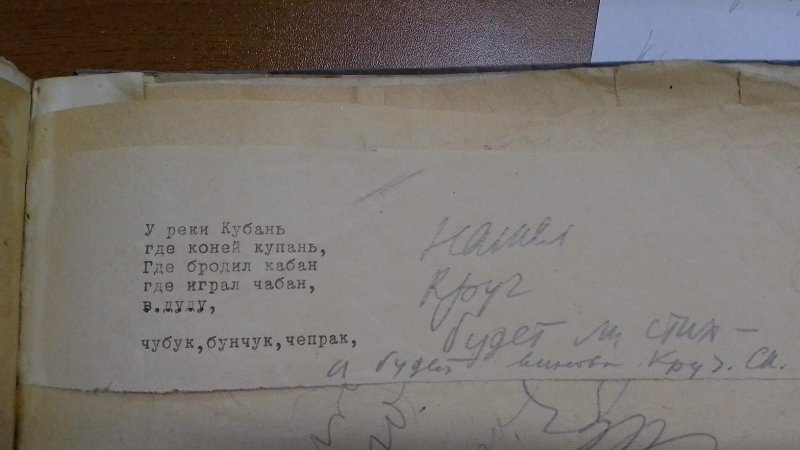 У реки Кубань
где коней купань,
Где бродил кабан
где играл чабан,
в.дуду,
чубук,бунчук,чепрак,
Нашел
Круч
будет ли стих —
а будет Круч. Са.